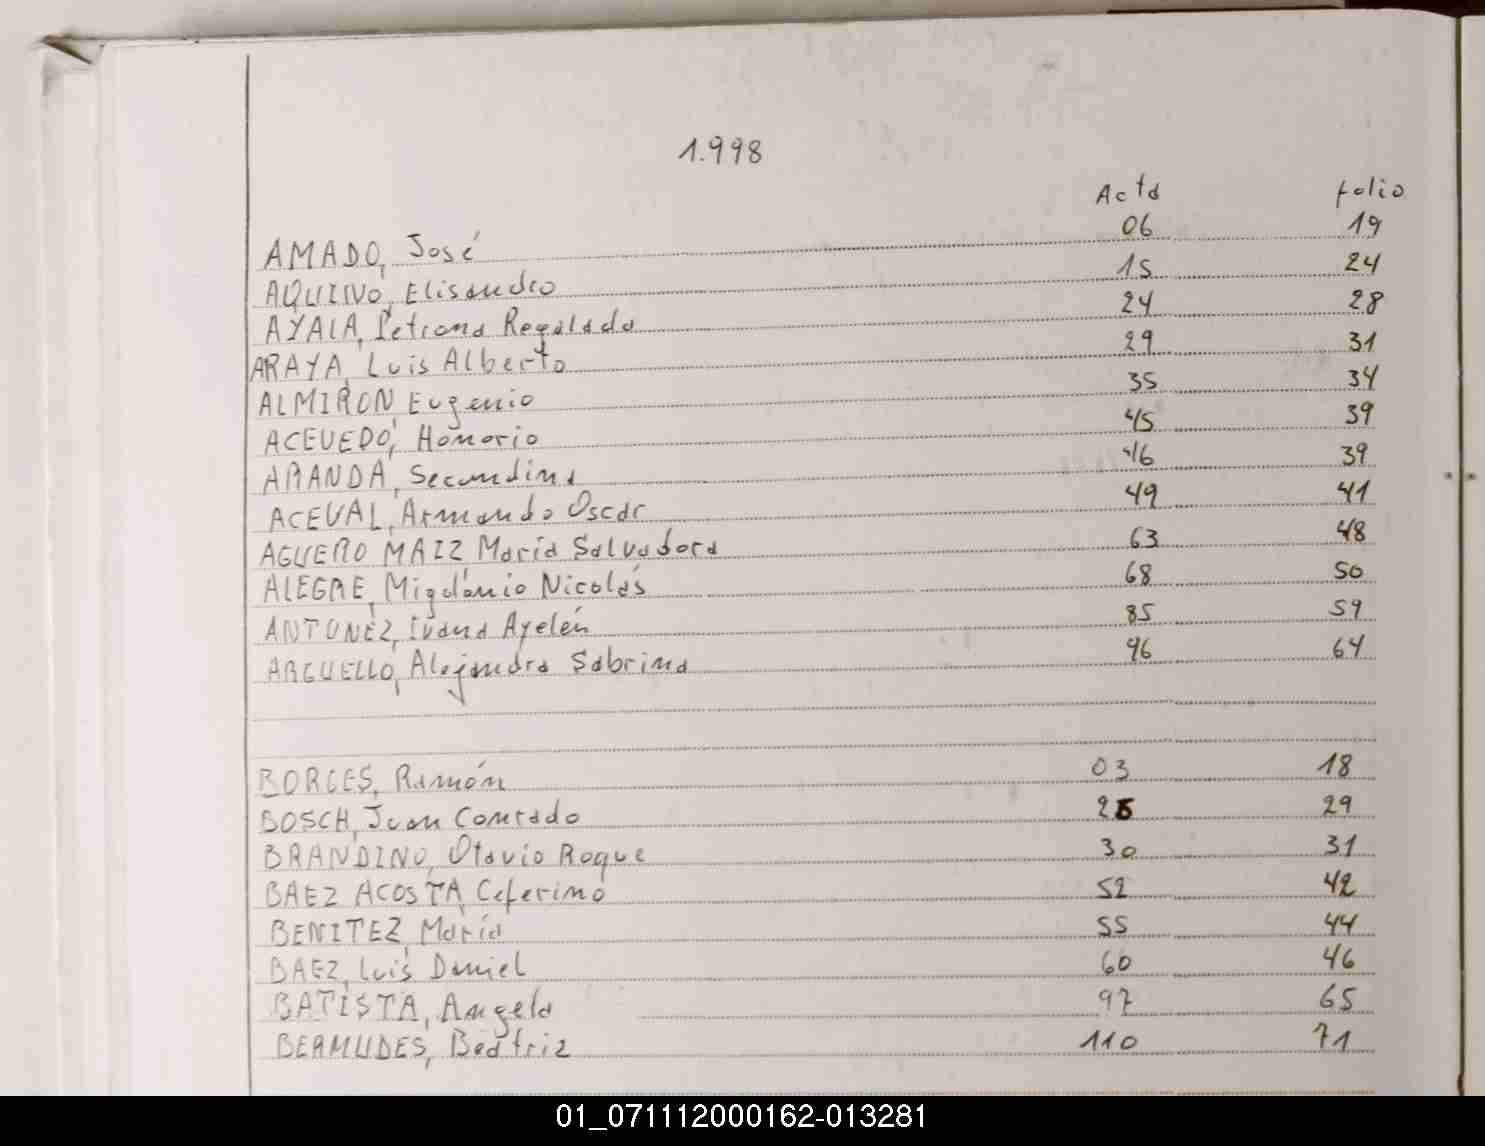 1.998
Acta folio
AMADO, José 06 19
AQUINO, Elisandro 15 24
AYALA, Petrona Regalada 24 28
ARAYA, Luis Alberto 29 31
ALMIRON Eugenio 35 34
ACEVEDO, Honorio 45 39
ARANDA, Secundina 46 39
ACEVAL, Armando Oscar 49 41
AGUERO MAIZ María Salvadora 63 48
ALEGRE, Migdonio Nicolás 68 50
ANTUNEZ, Ivana Ayelén 85 59
ARGUELLO, Alejandra Sabrina 96 64
BORGES, Ramón 03 18
BOSCH, Juan Conrado 26 29
BRANDINO, Otavio Roque 30 31
BAEZ ACOSTA, Ceferino 52 42
BENITEZ, María 55 44
BAEZ, Luis Daniel 60 46
BATISTA, Angela 97 65
BERMUDES, Beatriz 110 71
01_071112000162-013281